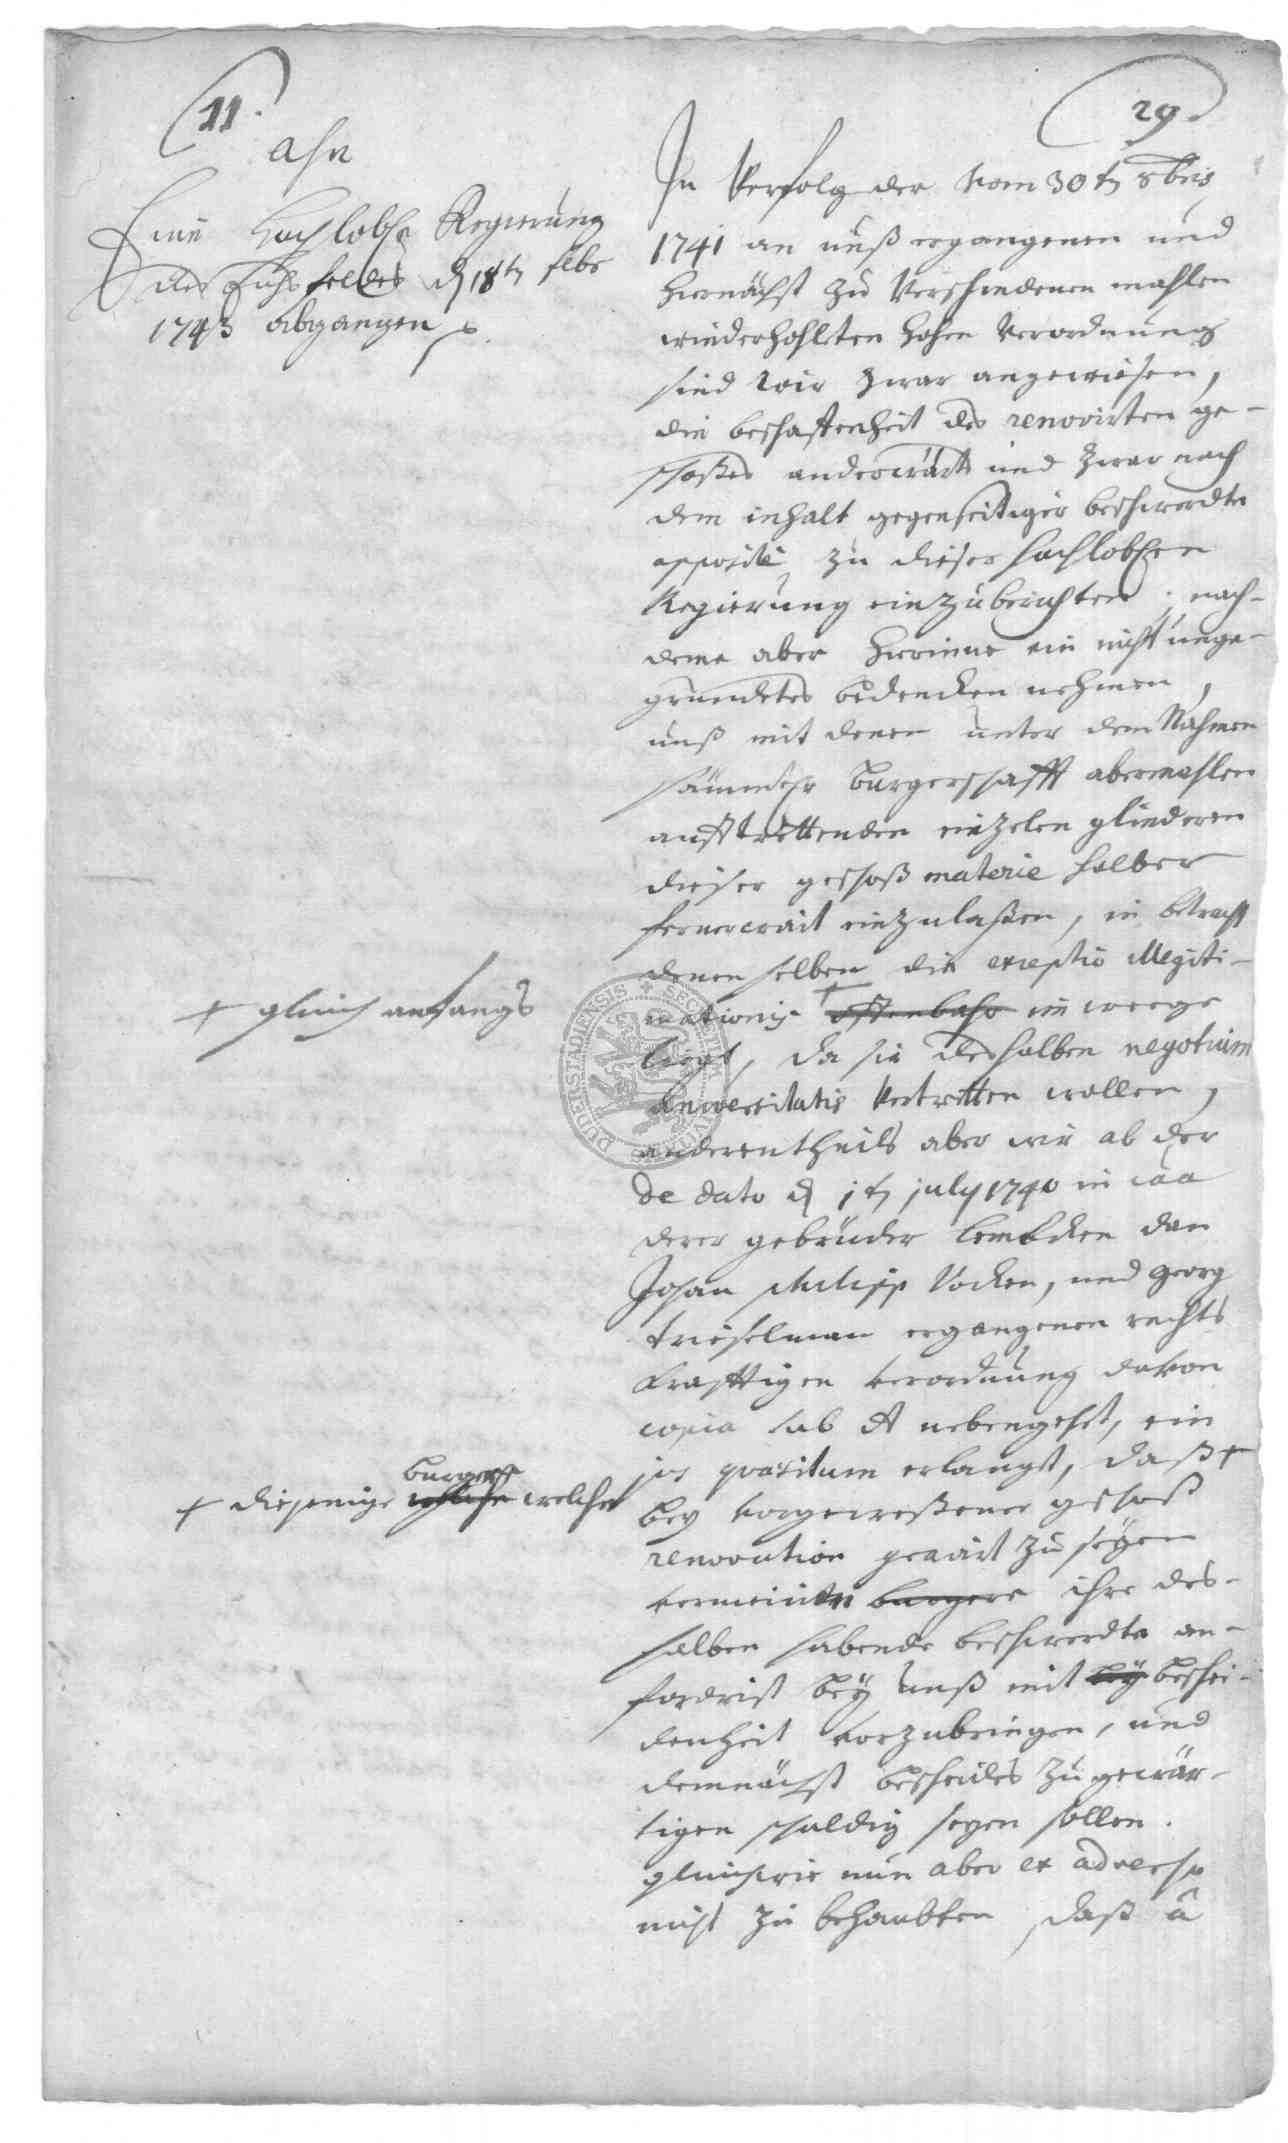 11.
29.
ahn
Eine Hochlobe Regierung
des Eichsfeldes d 18t
1743 abgangen
In Verfolg der vom 30t 8bris
1741 an unß ergangenen und
hiernächst zu verschiedenen mahlen
wiederhohlten hohen Verordnung
sind wir zwar angewiesen,
die beschaffenheit des renovirten ge-
schoßes anderwärts und zwar nach
dem inhalt gegenseitiger beschwerdte
apposite zu dieser hochloben
Regierung einzuberichten; nach-
deme aber hierinne ein nicht unge-
gründetes bedencken nehmen,
unß mit denen unter dem Nahmen
sämmtr burgerschafft abermahlen
aufftrettenden einzelen gliederen
dieser geschoß materie halber
fernerwait einzulaßen, in betracht
denenselben die exceptio illegiti-
+ gleich anfangs
mationis offenbahr im weege
liegt, da sie deshalben negotium
universitatis vertretten wollen,
anderentheils aber wir ab der
de dato d 1t july 1740 in caa
derer gebrüder Lemcken dan
Johan philipp Vocken, und Georg
Trieselman ergangenen rechts
krafftigen verordnung davon
copia sub A nebengeht, ein
jus quaesitum erlangt, daß +
+ diejenige burgere welche
bey vorgeweßener geschoß
renovation gravirt zu seyen
vermeinten burgere ihre des-
halben habende beschwerdte an-
fordrist bey unß mit bey beschei-
denheit vorzubringen, und
demnächst bescheides zu gewär-
tigen schuldig seyen sollen.
gleichwie nun aber ex adverso
nicht zu behaubten, daß a
DUDERSTADIENSIS + SECRETUM